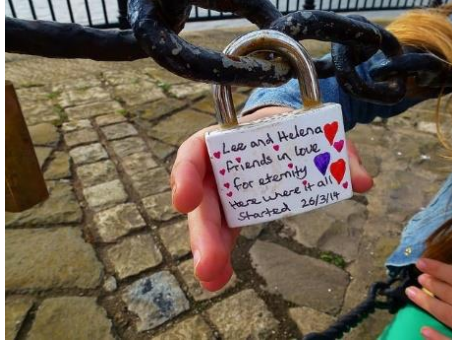 Lee and Helena
friends in love
for eternity
Here where it all
Started 26/3/14